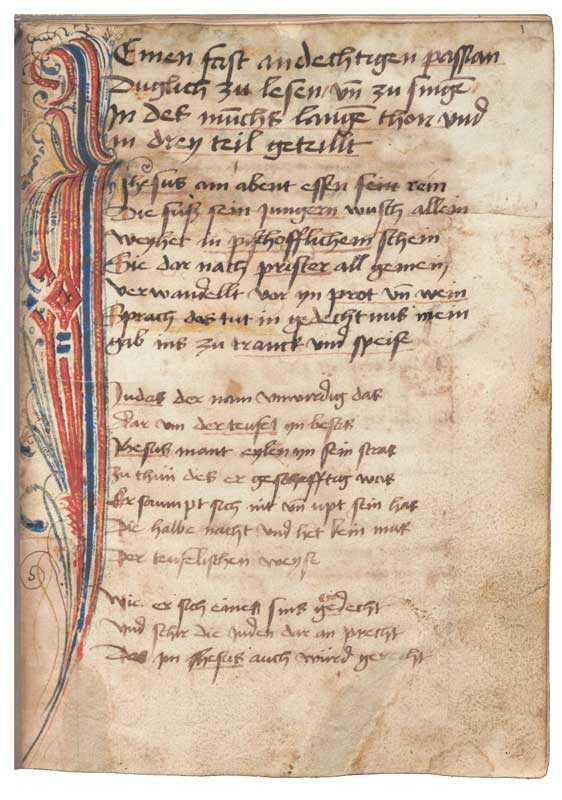 Einen fast andechtigen passian
Duglich zu lesen vn̄ zu singē
In des mūchs langē thon vnd
in drey teil geteillt
Jhesus am abent essen seint rein
Die füsz sein Jungern wusch allein
weyhet in pischofflichem schein
Sie dar nach prister all gemein
verwandellt vor yn prot vn̄ wein
Sprach das tut in gedechtnus mein
gab ins zu tranck vnd speise
Judas der nam vnwirdig das
Gar vm der teufel yn besas
Jhesus mant eylen yn sein stras
zu thun des er geschefftig was
Er saumpt sich nit vn̄ vpt sein has
Die halbe nacht vnd het kein mas
Der teufelischen weyse
wie er sich eines sins gedecht
vnd schir die Juden dar an precht
Das yn Jhesus auch würd
5
1